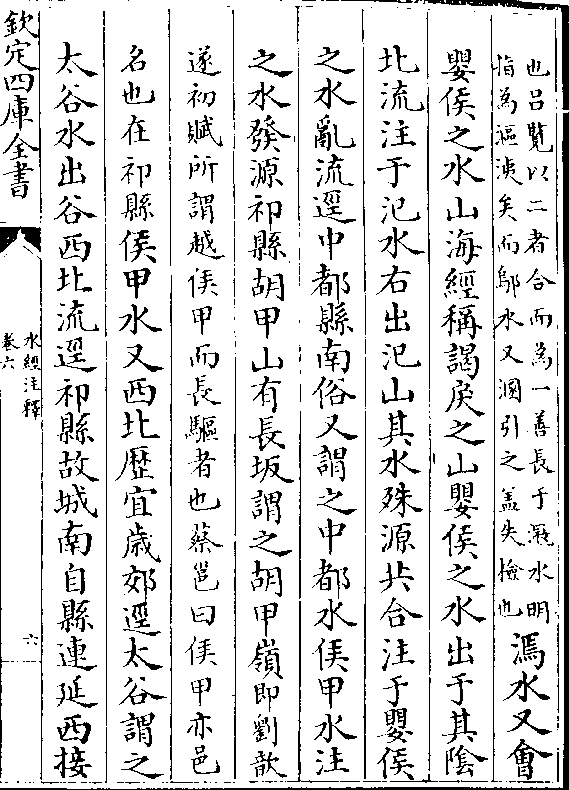 也吕覽以二者合而為一善長于滱水明
指為漚洟矣而鄔水又溷引之盖失檢也
漹水又會
嬰侯之水山海經稱謁戾之山嬰侯之水出于其陰
北流注于汜水右出汜山其水殊源共合注于嬰侯
之水亂流逕中都縣南俗又謂之中都水侯甲水注
之水發源祁縣胡甲山有長坂謂之胡甲嶺即劉歆
遂初賦所謂越侯甲而長驅者也蔡邕曰侯甲亦邑
名也在祁縣侯甲水又西北歷宜歲郊逕太谷謂之
太谷水出谷西北流逕祁縣故城南自縣連延西接
欽定四庫全書
水經注釋
卷六
六